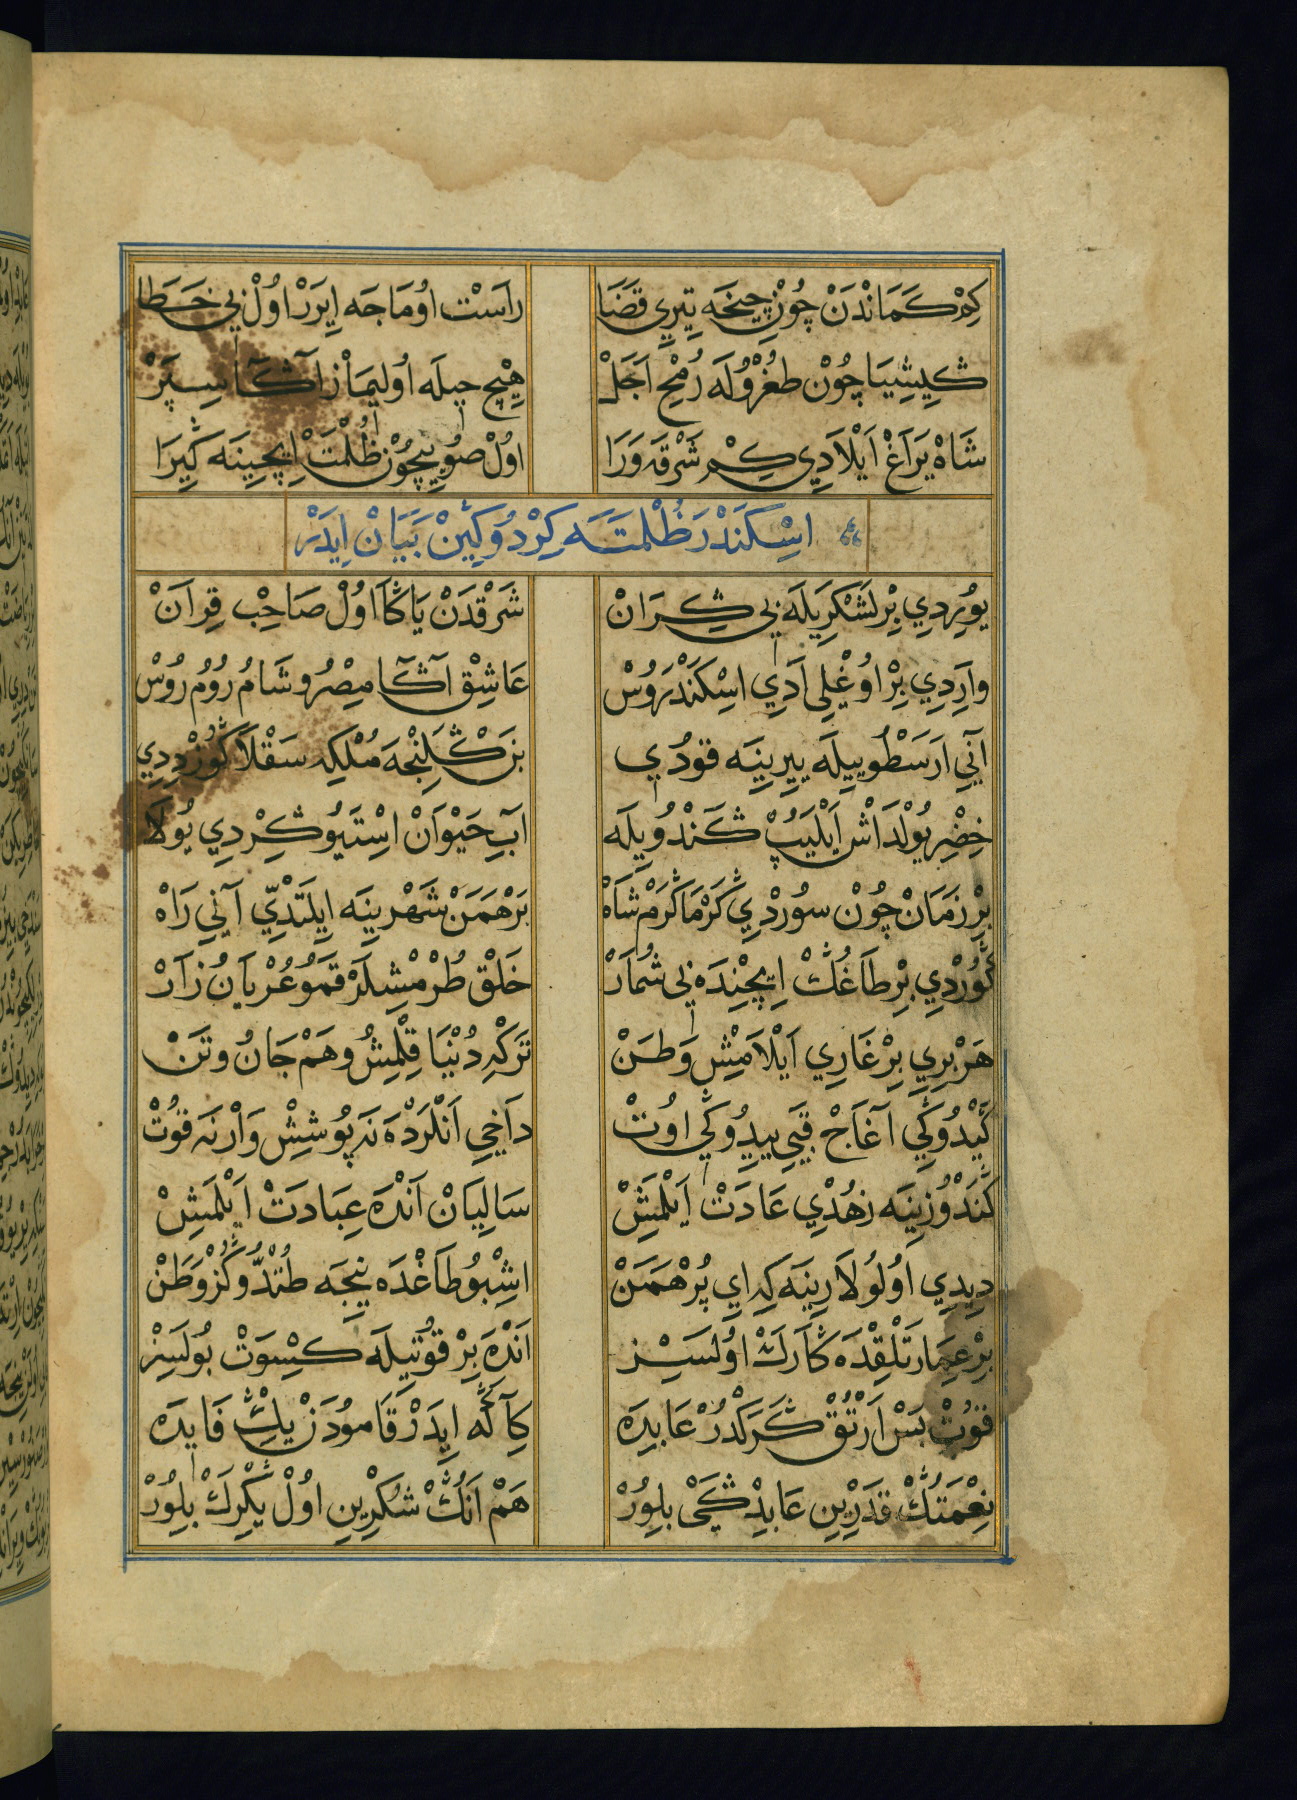 كِمْ كَمَانْدَنْ چُونْ چِيخَه تِيرِ قَضَا راَسْت اوُمَاجَه اِيرَرْ اوُلْ بِي خَطَا
ݣِيشِيَا چُونْ طُغْرُولَه رُمْحِ اَجَلْ هِيْچ حِيلَه اوُليمَازْ آݣَا سِپَرْ
شَاهْ يَرَاغْ اَيْلَادِي كِمْ شَرْقَه وَرَا اوُلْ صُويِيچُونْ ظُلْمَتْ اِيچِينَه كِيرَا
اسْكَنْدَرَ ظُلْمَتَه كِرْدُوكِينْ بَيَانْ اِيدَرْ
يوُرِدِي بِرْ لَشْكَرِيلَه بِي كِرَانْ شَرْقدَنْ يَاݣَا اوُلْ صَاحِبْ قِرَانْ
وارِدِي بِرْ اوُغْلِي اَدِي اسْكَنْدَرُوسْ عَاشِقْ آݣَا مِصْرُ و شَامُ رُومُ رُوسْ
آنِي اَرَسْطُويِيلَه يِيرِينَه قوُدِي بَنْ ݣَلِنْجَه مُلْكِه سَقْلَا كُوزْ دِدِي
خِضْرِ يُولْدَاشْ اَيْلَيُپْ كَنْدُويِلَه آبِ حَيْوَانْ اسْتَيُو كِرْدِي يُولَا
بِرْ زَمَانْ چُونْ سوُرْدِي كَرْمَا كَرْمْ شَاهْ بَرْهَمَنْ شَهْرِينَه اِيلَتْدِي آنِي رَاهْ
كُورْدِي بِرْ طَاغُݣْ اِيچِنْدَه بِي شُمَارْ خَلْق طُرْمِشْلَرْ قَمُو عُرْيَانُ زَارْ
هَرْ بِرِي بِرْ غَارِي اَيْلَامِشْ وَطَنْ تَرْكِ دُنْيَا قِلْمِشُ و هَمْ جَانُ و تَنْ
كَيْدُوكِي آغَاجْ قَبِي يِيدُوكِي اوُتْ دَاَخِي اَنْلَرْدَه نَه پُوشِشْ وَارْ نَه قوُتْ
كَنْدُوزِينَه زُهْدِي عَادَتْ اَيْلَمِشْ سَالِيَانْ آنْدَه عِبَادَتْ اَيْلَمَشِنْ
دِيدِي اوُلُولَارِينَه كِه اِي بُرْهَمَنْ اشْبُو طَاغْدَه نِيجَه طُتْدُّوكُزْ وَطَنْ
بِرْ عِمَارَتْلِقْدَه كَآرَكْ اوُلسَيِزْ اَنْدَه بِرْ قوُتِيلَه كِسْوَتْ بُولَسِزْ
قوُتْ بَسْ اَرْتُقْ كَرَكْدُرْ عَابِدَه كِآكَه اِيدَرْ قَامودَنْ يِكْ فَايدَه
نِعْمَتُݣْ قَدْرِينِ عَابِدْ يِكَيْ بِلوُرْ هَمْ اَنُݣْ شُكْرِينِ اوُلْ يِكْرَكْ بِلوُرْ